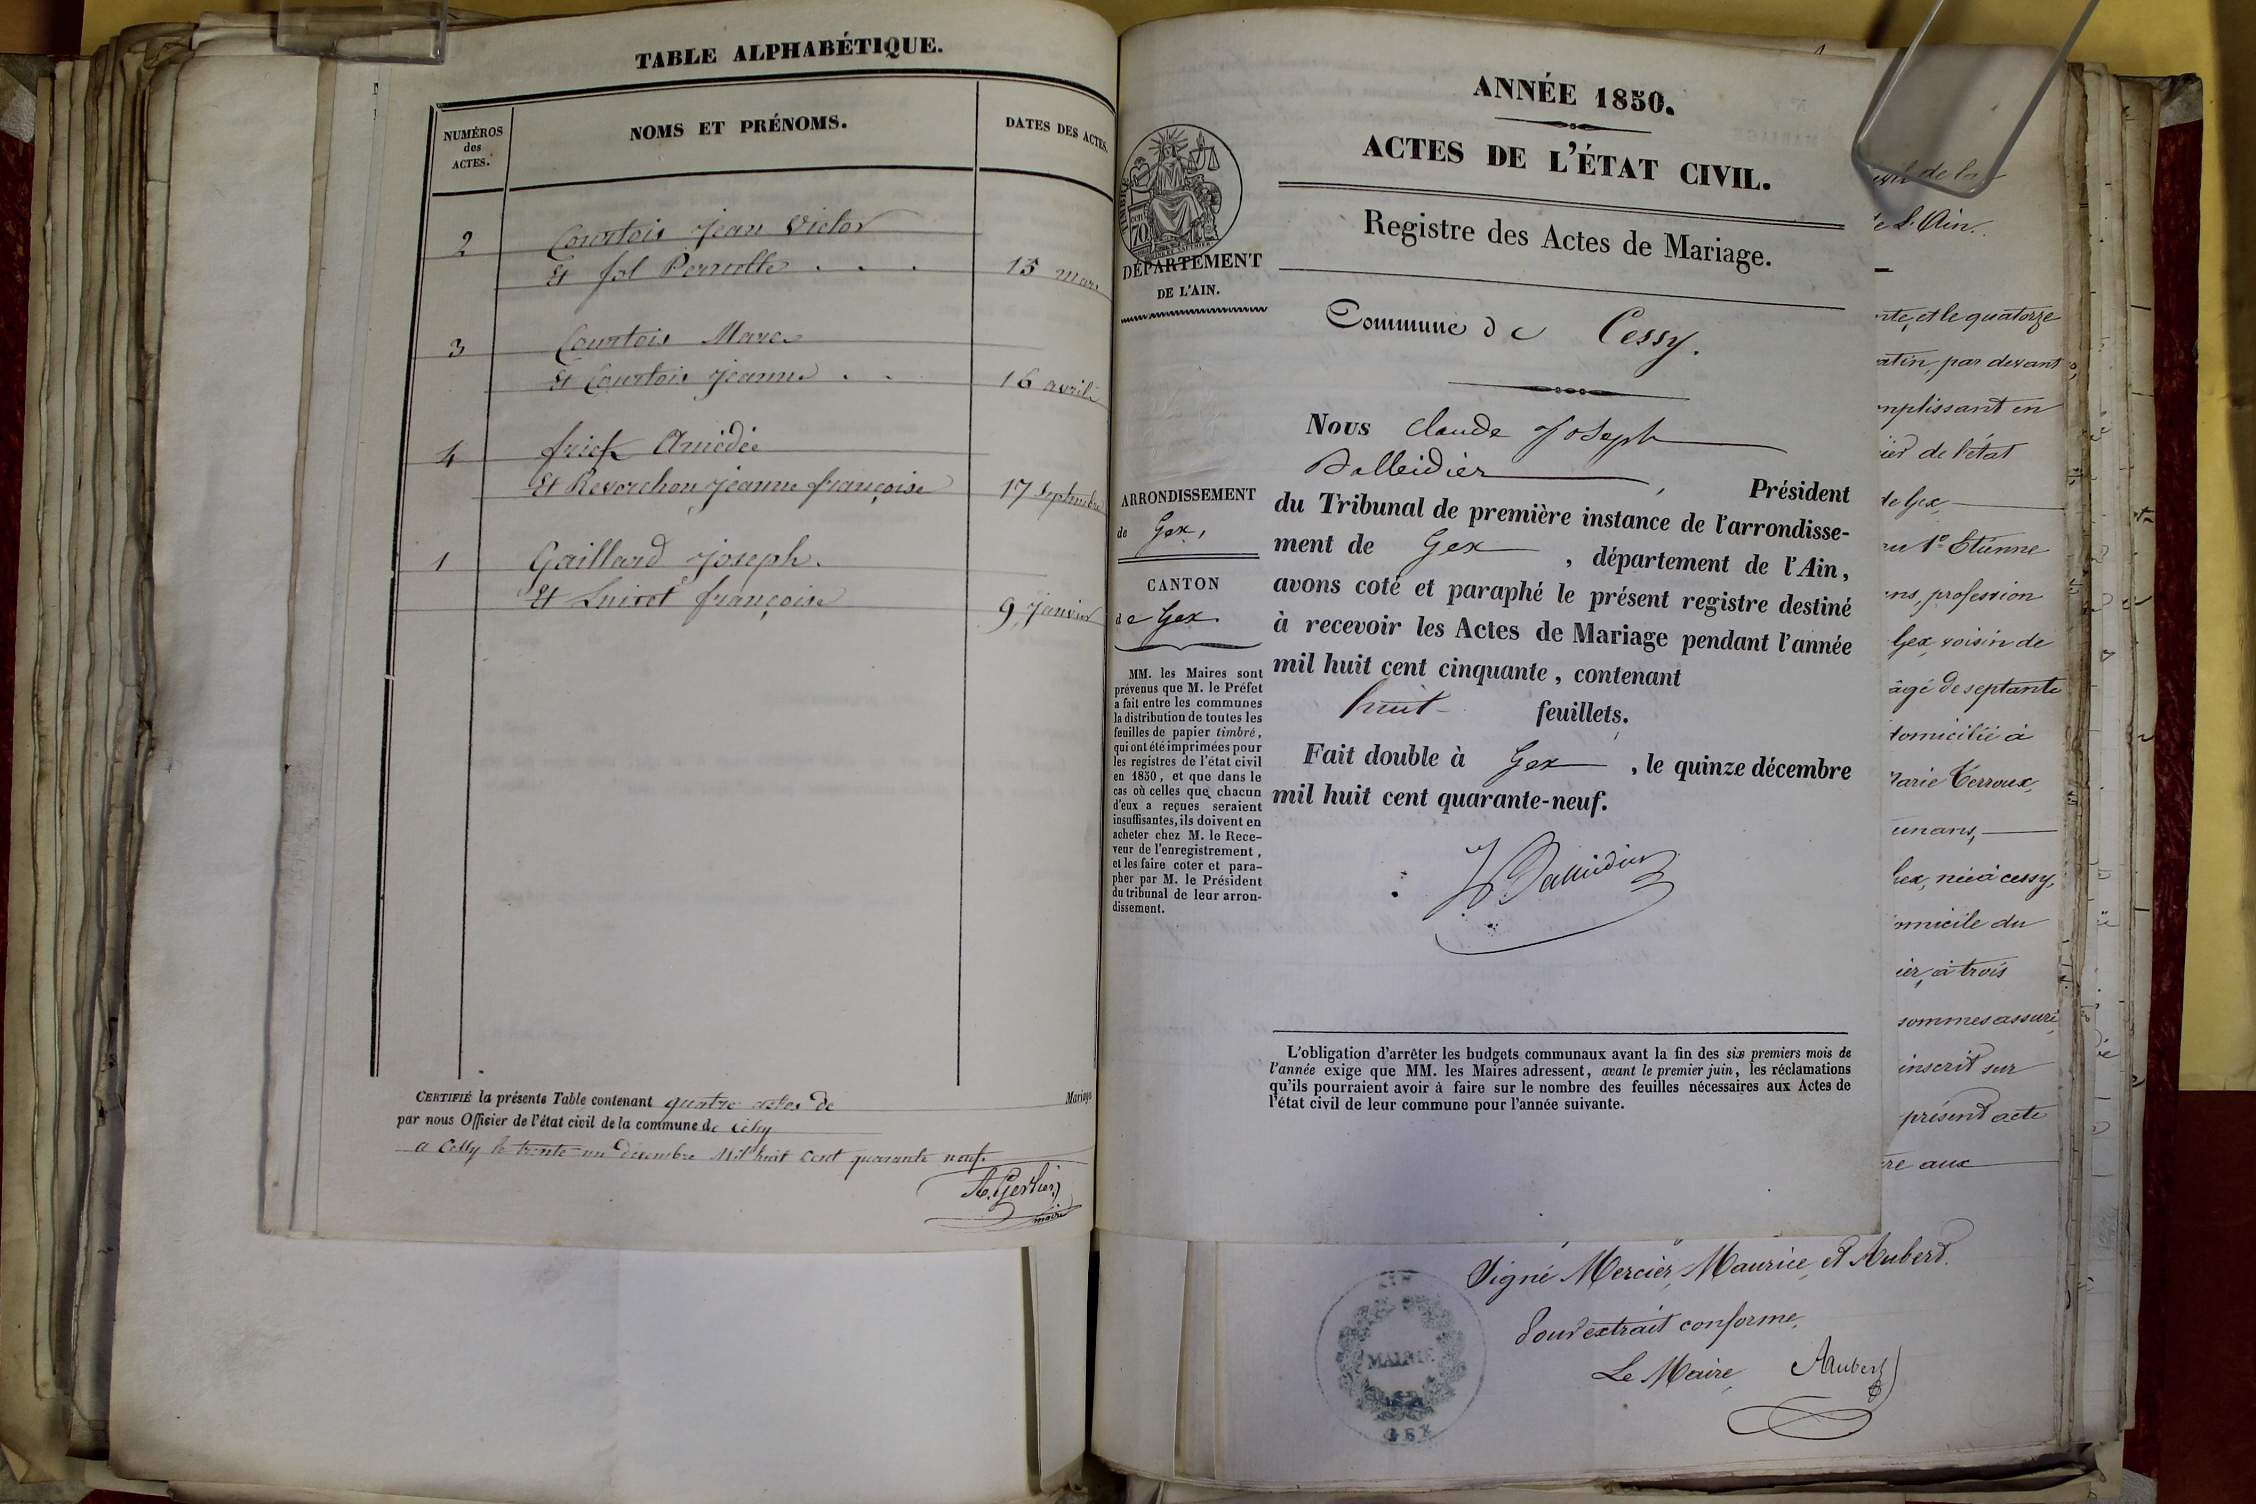 TABLE ALPHABÉTIQUE.
NUMÉROS
des
ACTES.
NOMS ET PRÉNOMS.
DATES DES ACTES.
2 Courtois Jean Victor
Et fol Pernette . . . 15 mars
3 Courtois Marc
Et Courtois Jeanne . . 16 avril
4 frick Amédée
Et Reverchon Jeanne françoise 17 septembre
1 Gaillard Joseph.
Et françoise 9 Janvier
CERTIFIÉ la présente Table contenant quatre actes de Mariage
par nous Officier de l'état civil de la commune de Cessy
a Cessy le trente-un décembre Mil huit Cent quarante neuf.
maire
ANNÉE 1850.
ACTES DE L'ÉTAT CIVIL.
Registre des Actes de Mariage.
Commune de Cessy.
DÉPARTEMENT
DE L'AIN.
ARRONDISSEMENT
de Gex,
CANTON
de Gex.
MM. les Maires sont
prévenus que M. le Préfet
a fait entre les communes
la distribution de toutes les
feuilles de papier timbré,
qui ont été imprimées pour
les registres de l'état civil
en 1850, et que dans le
cas où celles que chacun
d'eux a reçues seraient
insuffisantes, ils doivent en
acheter chez M. le Rece-
veur de l'enregistrement,
et les faire coter et para-
pher par M. le Président
du tribunal de leur arron-
dissement.
Nous Claude Joseph
, Président
du Tribunal de première instance de l'arrondisse-
ment de Gex , département de l'Ain,
avons coté et paraphé le présent registre destiné
à recevoir les Actes de Mariage pendant l'année
mil huit cent cinquante, contenant
huit feuillets.
Fait double à Gex , le quinze décembre
mil huit cent quarante-neuf.
L'obligation d'arrêter les budgets communaux avant la fin des six premiers mois de
l'année exige que MM. les Maires adressent, avant le premier juin, les réclamations
qu'ils pourraient avoir à faire sur le nombre des feuilles nécessaires aux Actes de
l'état civil de leur commune pour l'année suivante.
de la
L'Ain.
nte, et le quatorze
atin, par devant
mplissant en
de l'état
de Gex,
1° Etienne
ns, profession
Gex, voisin de
âgé de septante
domicilié à
Marie Terroux,
un ans,
Gex, née à cessy,
omicile du
ier, à trois
sommes assuré
inscrit sur
présent acte
re aux
Signé Mercier, Maurice, et Aubert.
Pour extrait conforme.
Le Maire, Aubert
MAIRIE
GEX